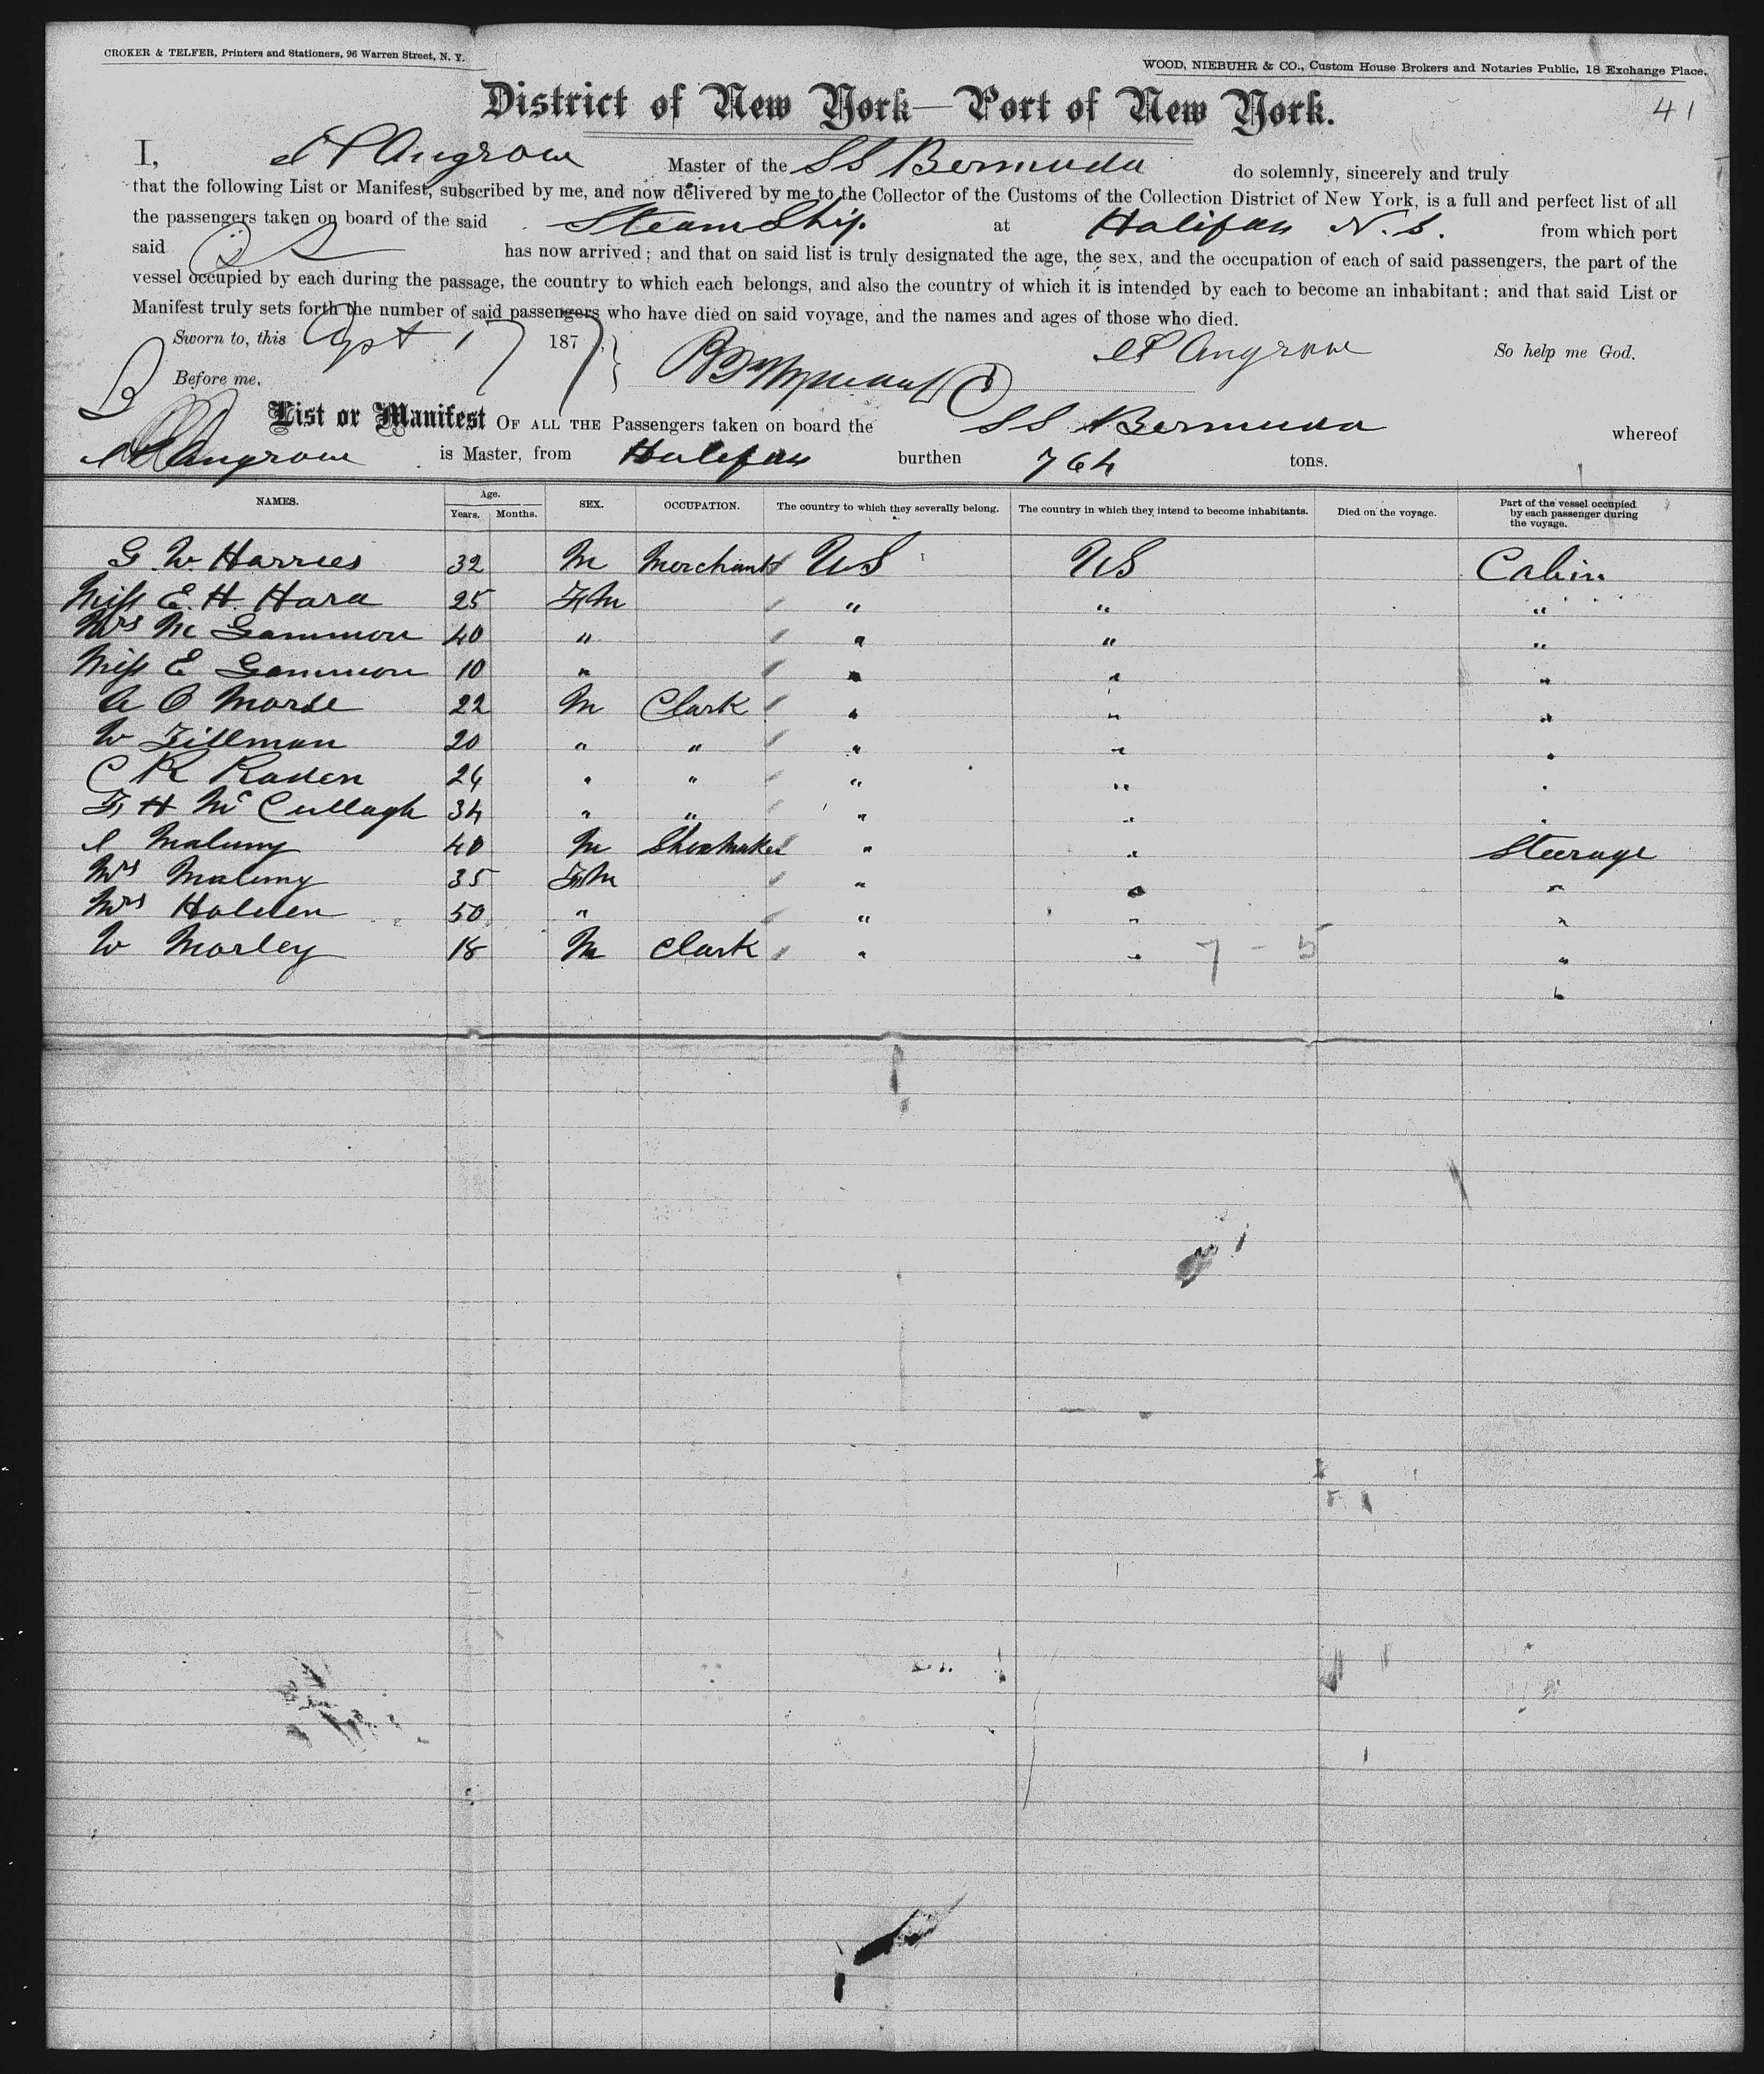 CROKER & TELFER, Printers and Stationers, 96 Warren Street, N. Y.
WOOD, NIEBUHR & CO., Custom House Brokers and Notaries Public, 18 Exchange Place.
District of New York—Port of New York.
41
I, Angrove Master of the SS Bermuda do solemnly, sincerely and truly
that the following List or Manifest, subscribed by me, and now delivered by me to the Collector of the Customs of the Collection District of New York, is a full and perfect list of all
the passengers taken on board of the said Steam Ship at Halifax N.S. from which port
said has now arrived; and that on said list is truly designated the age, the sex, and the occupation of each of said passengers, the part of the
vessel occupied by each during the passage, the country to which each belongs, and also the country of which it is intended by each to become an inhabitant; and that said List or
Manifest truly sets forth the number of said passengers who have died on said voyage, and the names and ages of those who died.
Sworn to, this 17 1877, Angrove So help me God.
Before me,
List or Manifest OF ALL THE Passengers taken on board the SS Bermuda whereof
Angrove is Master, from Halifax burthen 764 tons.
NAMES. Age. Years. Months. SEX. OCCUPATION. The country to which they severally belong. The country in which they intend to become inhabitants. Died on the voyage. Part of the vessel occupied by each passenger during the voyage.
G. W Harries 32 M Merchant US US Cabin
Miss E. H. Hara 25 F,M " " "
Mrs Mc Gammon 40 " " " "
Miss E Gammon 10 " " " "
A O Morse 22 M Clark " " "
W Tillman 20 " " " " "
C R Raden 24 " " " " "
F, H Mc Cullagh 34 " " " " "
Malumy 40 M Shoemaker " " Steerage
Mrs Malumy 35 F,M " " "
Mrs Holden 50 " " " "
W Morley 18 M Clark " " "
7 - 5